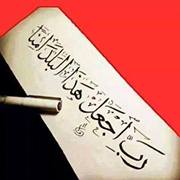 رَبِّ اجْعَلْ هَذَا البَلَدَ آمِنًا